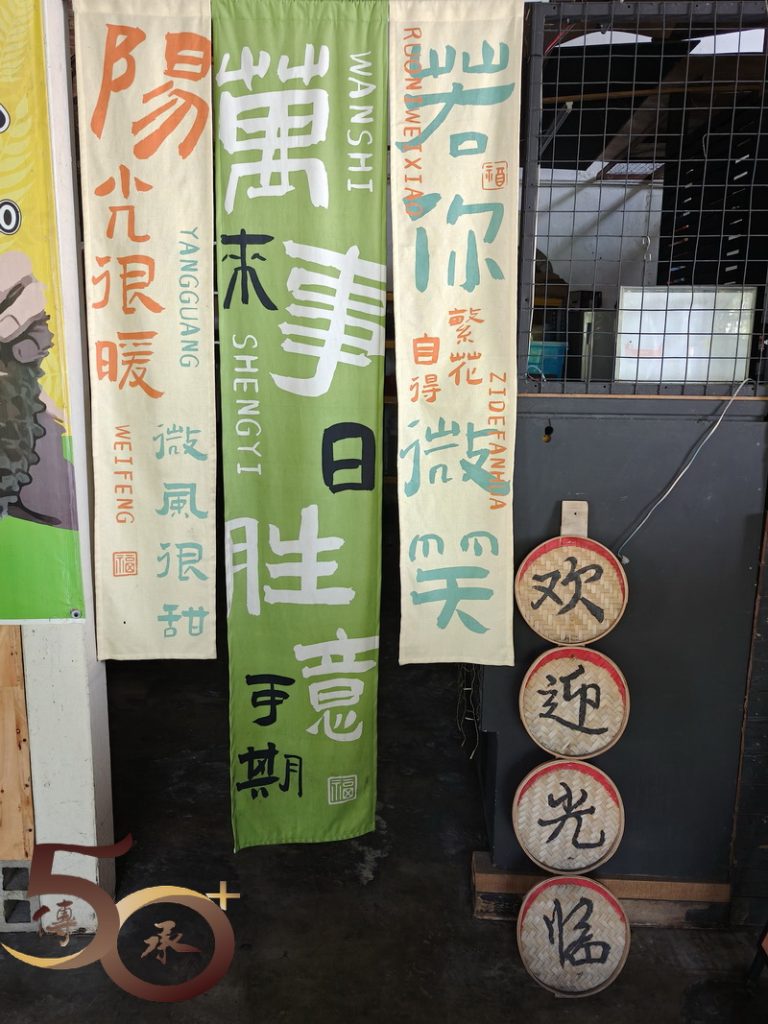 陽光很暖
YANGGUANG
微風很甜
WEIFENG
福
萬事胜意
WANSHI
來日可期
SHENGYI
福
若你微笑
RUONIWEIXIAO
福
繁花
自得
ZIDEFANHUA
欢迎光临
50+
傳承